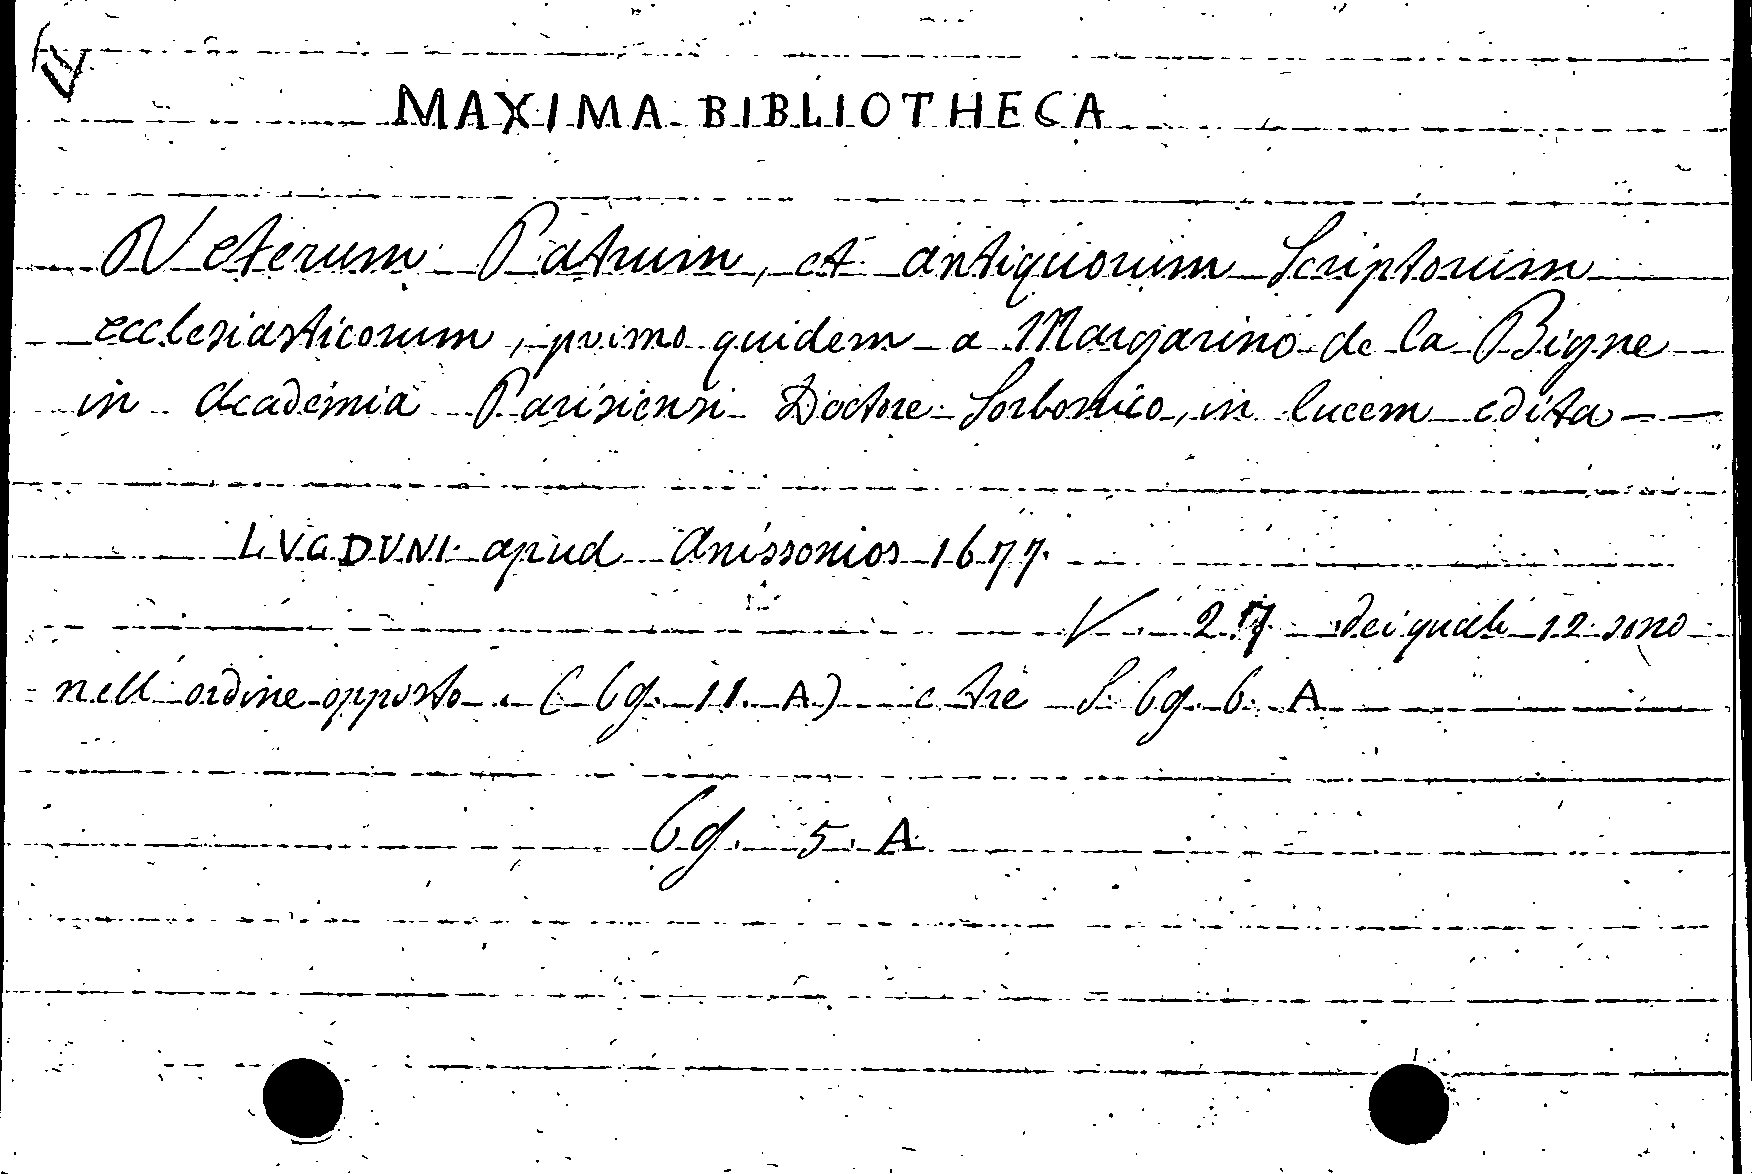 MAXIMA BIBLIOTHECA
Veterum Patrum, et antiquorum Scriptorum
ecclesiasticorum, primo quidem a Margarino de la Bigne
in Academia Parisiensi Doctore Sorbonico, in lucem edita —
LVGDVNI apud Anissonios 1677.
V 27 dei quali 12 sono
nell'ordine opposto. (6g. 11. A) e tre S. 6g. 6. A
6g. 5. A